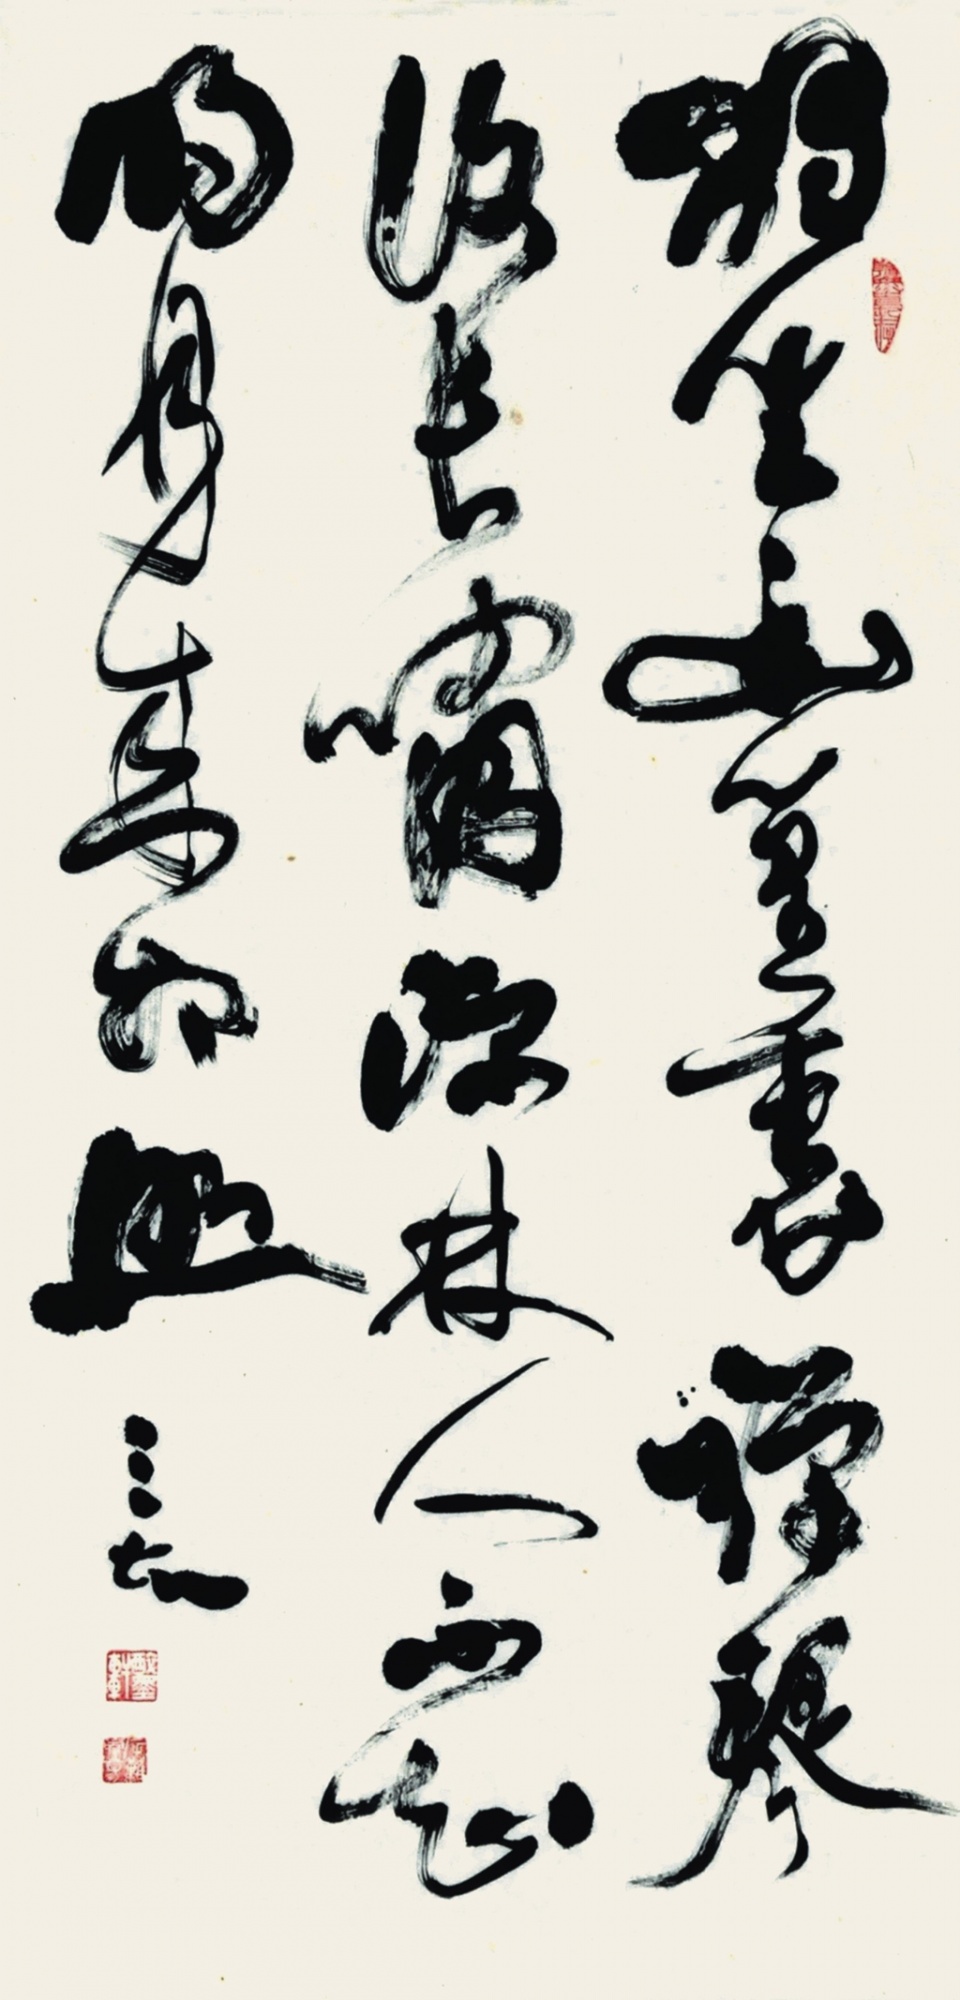 獨坐幽篁裏彈琴
復長嘯深林人不知
明月來相照